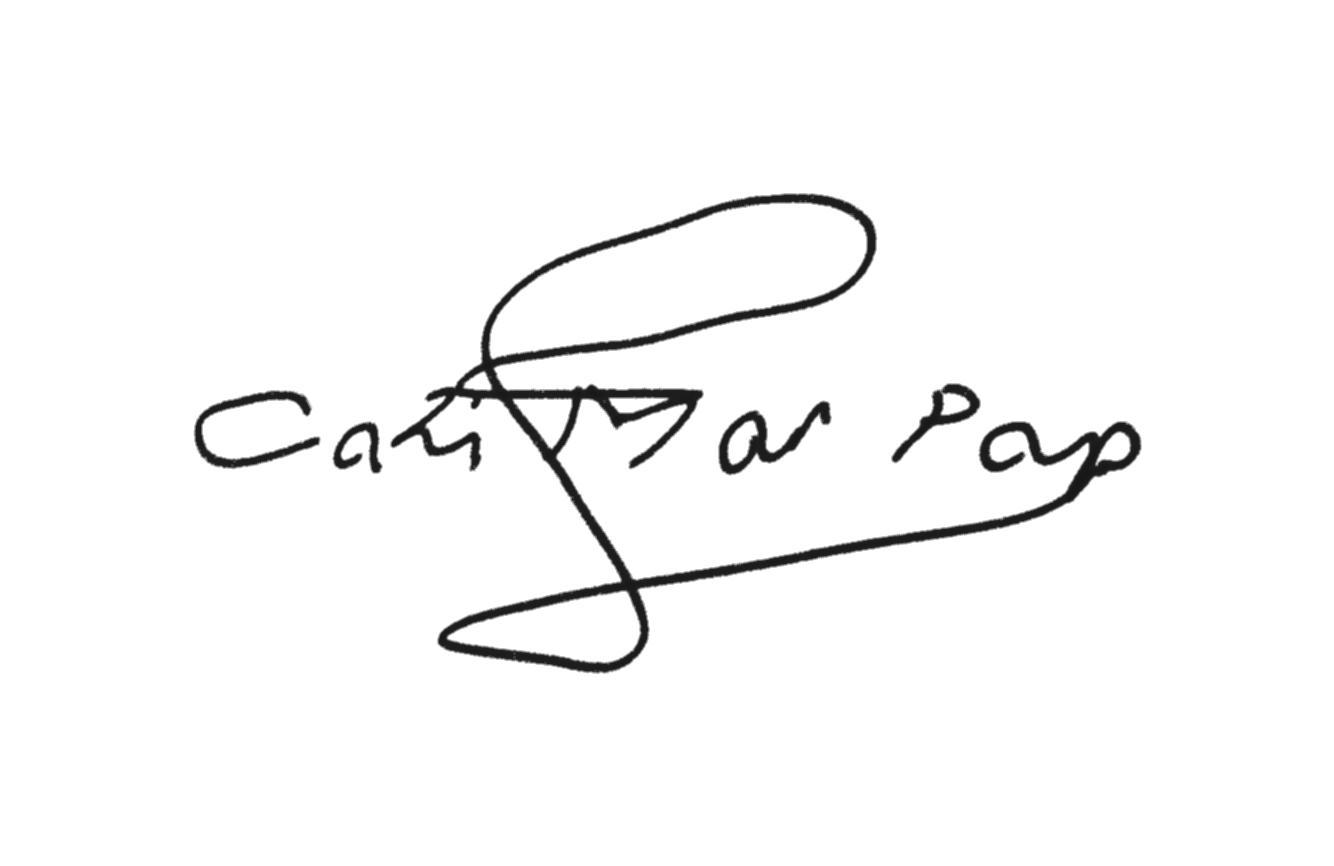 Cati Mar Pap